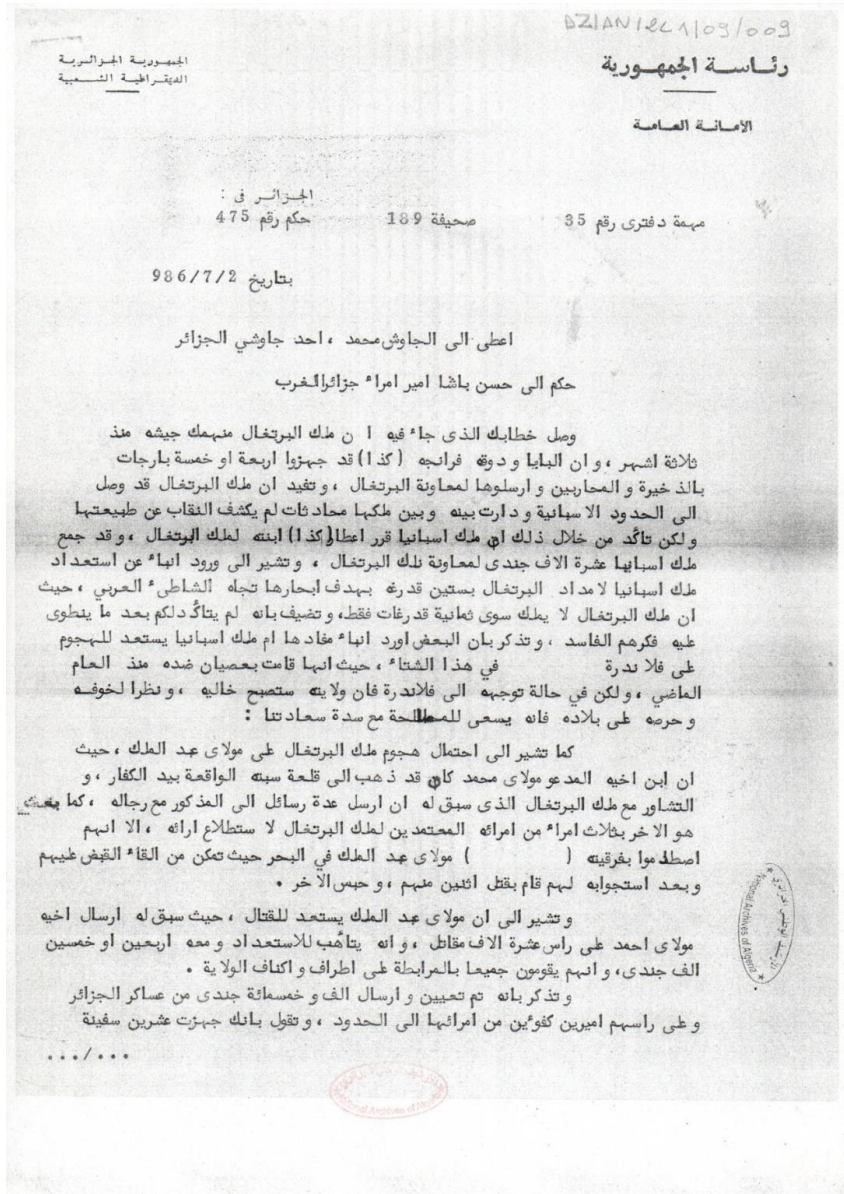 DZ/AN/2E1/09/009
الجمهورية الجزائرية
الديمقراطية الشعبية
رئاسة الجمهورية
الأمانة العامة
الجزائر في :
مهمة دفترى رقم 35 صحيفة 189 حكم رقم 475
بتاريخ 986/7/2
اعطى الى الجاوش محمد ، احد جاوشي الجزائر
حكم الى حسن باشا امير امراء جزائر الغرب
وصل خطابك الذى جاء فيه ا ن ملك البرتغال منهمك جيشه منذ
ثلاثة اشهر ، و ان البابا و دوقه فرانجه (كذا) قد جهزوا اربعة او خمسة بارجات
بالذ خيرة و المحاربين و ارسلوها لمعاونة البرتغال ، و تفيد ان ملك البرتغال قد وصل
الى الحدود الا سبانية و دارت بينه و بين ملكها محاد ثات لم يكشف النقاب عن طبيعتها
و لكن تأكد من خلال ذلك ان ملك اسبانيا قرر اعطاء (كذا) ابنته لملك البرتغال ، و قد جمع
ملك اسبانيا عشرة الاف جندى لمعاونة تلك البرتغال ، و تشير الى ورود انباء عن استعداد
ملك اسبانيا لا مداد البرتغال بستين قدرغه بهدف ابحارها تجاه الشاطىء العربي ، حيث
ان ملك البرتغال لا يملك سوى ثمانية قدرغات فقط، و تضيف بانه لم يتأكد لكم بعد ما ينطوى
عليه فكرهم الفاسد ، و تذكر بان البعض اورد انباء مفاد ها ام ملك اسبانيا يستعد للهجوم
على فلا ندرة في هذا الشتاء ، حيث انها قامت بعصيان ضده منذ العام
الماضي ، و لكن في حالة توجهه الى فلاندرة فان ولا يته ستصبح خاليه ، و نظرا لخوفه
و حرصه على بلاده فانه يسعى للمصالحة مع سدة سعاد تنا :
كما تشير الى احتمال هجوم ملك البرتغال على مولاى عبد الملك ، حيث
ان ابن اخيه المدعو مولاى محمد كان قد ذهب الى قلعة سبته الواقعة بيد الكفار ، و
التشاور مع ملك البرتغال الذى سبق له ان ارسل عدة رسائل الى المذكور مع رجاله ، كما بعث
هو الا خر بثلاث امراء من امرائه المعتمد ين لملك البرتغال لا ستطلاع ارائه ، الا انهم
اصطدموا بفرقيته ( ) مولاى عبد الملك في البحر حيث تمكن من القاء القبض عليهم
و بعد استجوابه لهم قام بقتل اثنين منهم ، و حبس الا خر .
و تشير الى ان مولاى عبد الملك يستعد للقتال ، حيث سبق له ارسال اخيه
مولاى احمد على راس عشرة الاف مقاتل ، و انه يتأهب للاستعداد و معه اربعين او خمسين
الف جندى، و انهم يقومون جميعا بالمرابطة على اطراف و اكناف الولاية .
و تذكر بانه تم تعيين و ارسال الف و خمسمائة جندى من عساكر الجزائر
و على راسهم اميرين كفوئين من امرائها الى الحدود ، و تقول بانك جهزت عشرين سفينة
.../...
National Archives of Algeria